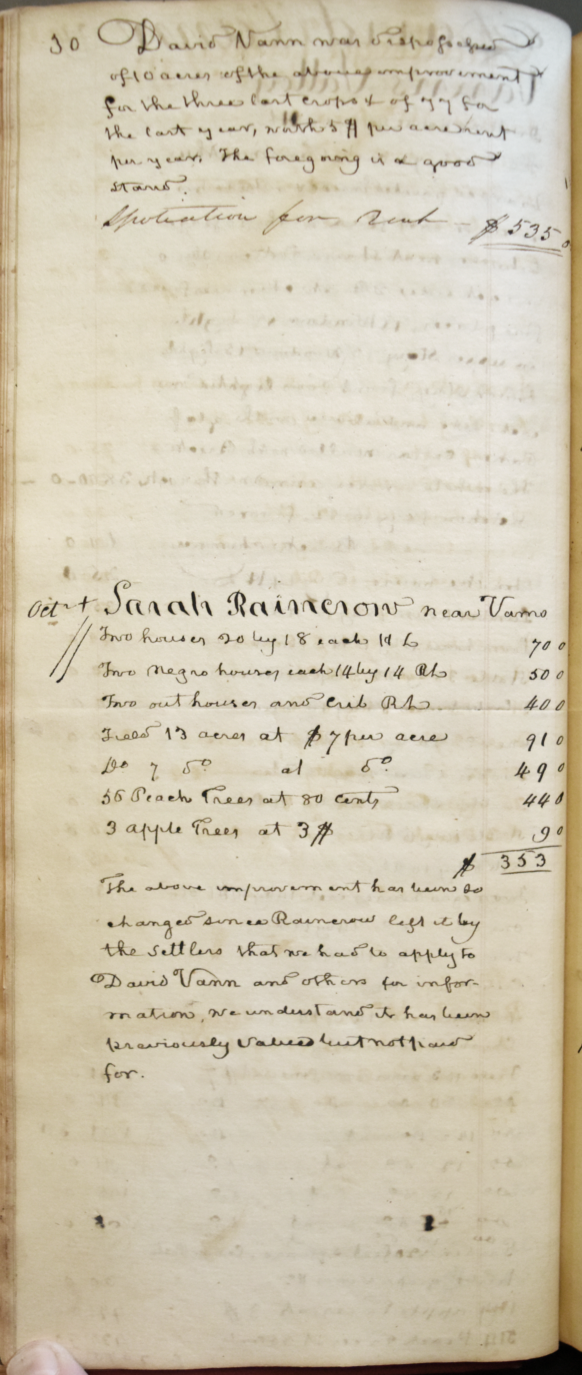 30 David Vann was dispossessed
of 10 acres of the above improvement
for the three last crops & of 77 for
the last year, worth 5$ per acre rent
per year. The foregoing is a good
stand.
Spoliation for Rent - $535 0
Oct 4 Sarah Raincrow near Vanns
Two houses 20 by 18 each H L 70 0
Two Negro houses each 14 by 14 RL 50 0
Two out houses and Crib RL 40 0
Field 13 acres at $7 per acre 91 0
Do 7 do at do 49 0
56 Peach Trees at 80 cents 44 0
3 apple Trees at 3$ 9 0
$ 353
The above improvement has been so
changed since Raincrow left it by
the settlers that we had to apply to
David Vann and others for infor-
mation, we understand it has been
previously valued but not paid
for.